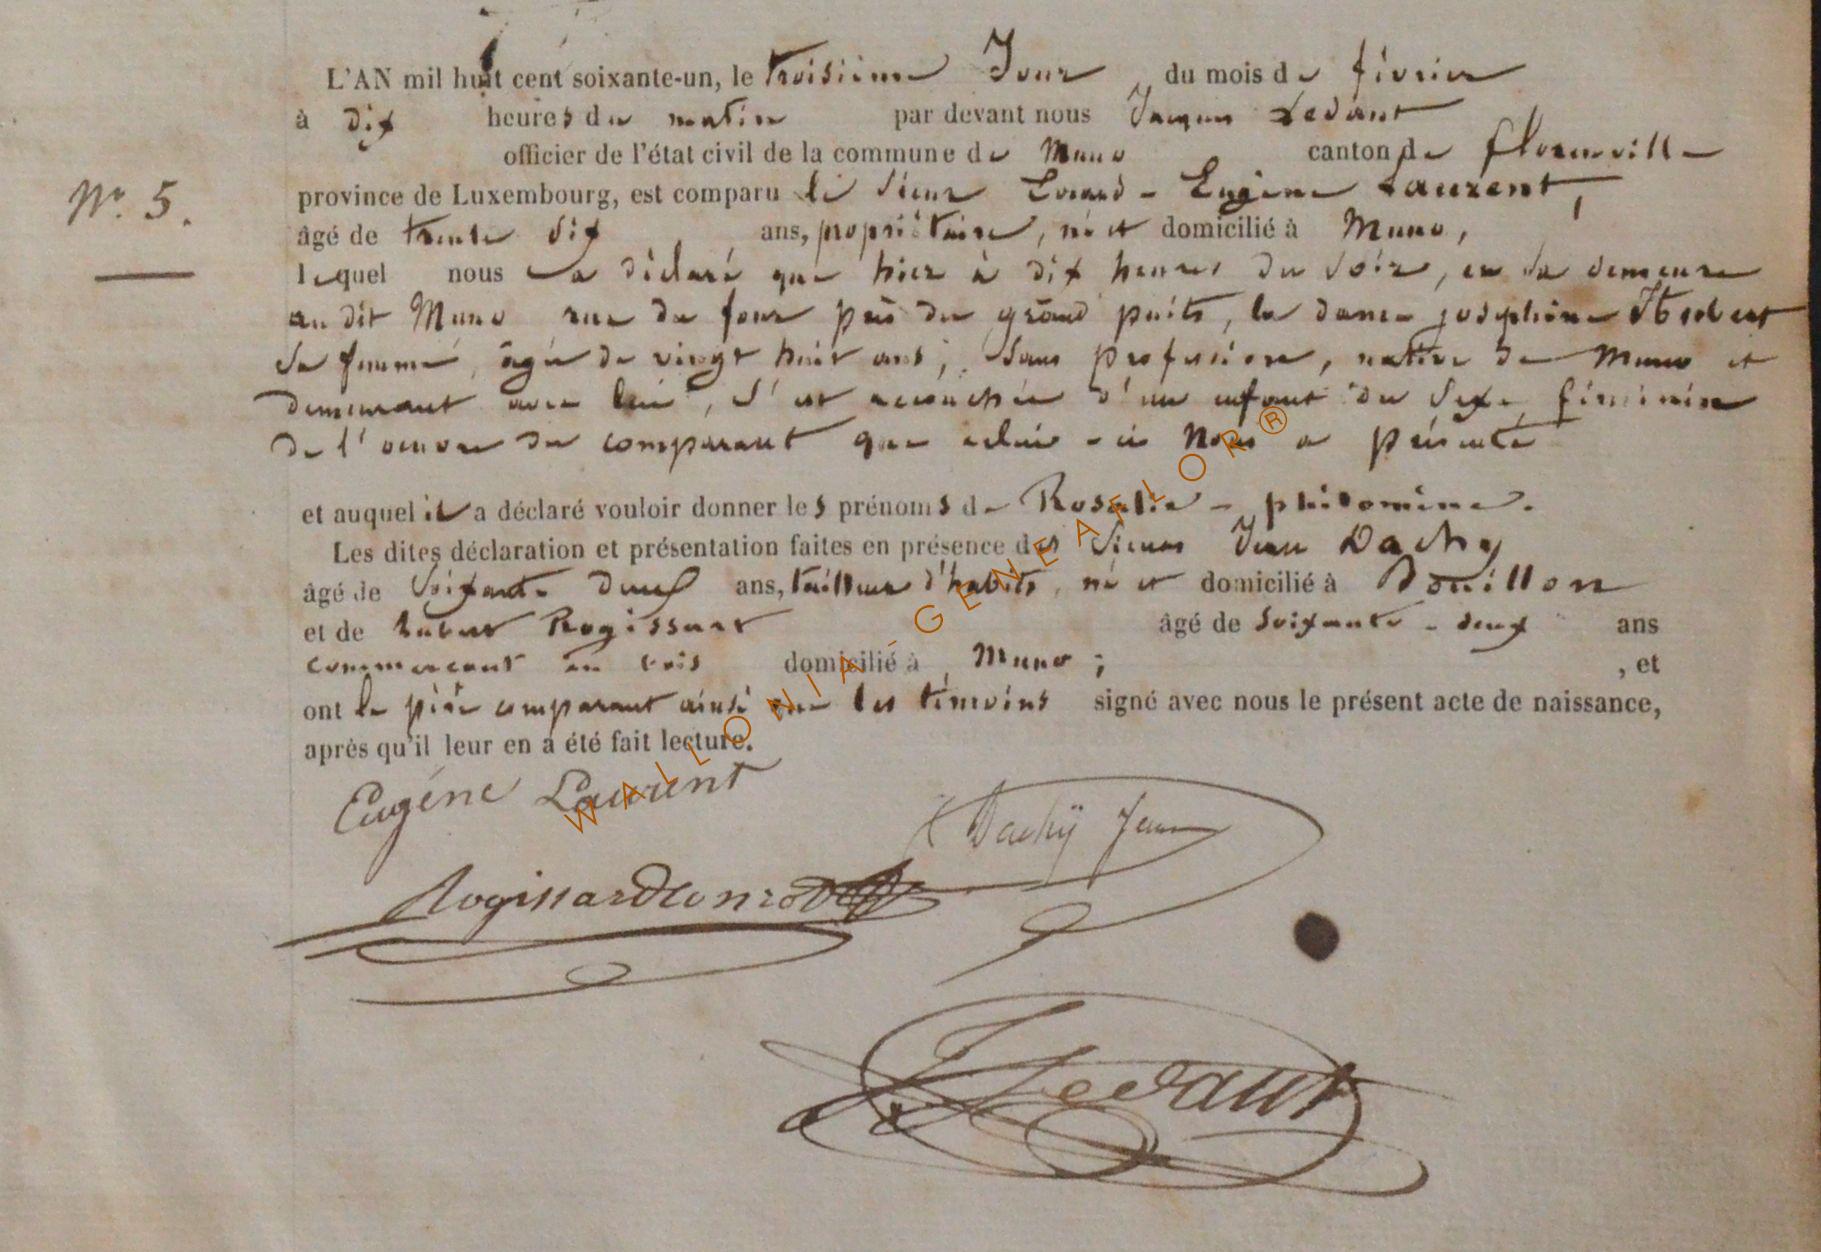 L'AN mil huit cent soixante-un, le troisième Jour du mois de février
à dix heures du matin par devant nous Jacques Ledant
officier de l'état civil de la commune de Muno canton de florenville
N°. 5.
province de Luxembourg, est comparu le sieur Evrard - Eugène Laurent,
âgé de trente six ans, propriétaire, né et domicilié à Muno,
lequel nous a déclaré que hier à dix heures du soir, en sa demeure
au dit Muno rue du four près du grand puits, la dame joséphine Herbert
sa femme, âgée de vingt huit ans, sans profession, native de Muno et
demeurant avec lui, s'est accouchée d'un enfant du sexe féminin
de l'oeuvre du comparant que celui-ci Nous a présenté
et auquel il a déclaré vouloir donner les prénoms de Rosalie - philomène.
Les dites déclaration et présentation faites en présence des sieurs Jean Dachy
âgé de soixante deux ans, tailleur d'habits, né et domicilié à Bouillon
et de hubert Rogissart âgé de soixante-deux ans
commerçant en bois domicilié à Muno ; , et
ont le père comparant ainsi que les témoins signé avec nous le présent acte de naissance,
après qu'il leur en a été fait lecture.
Eugéne Laurent
Dachÿ Jean
Rogissard
Ledant
WALLONIA-GENEAFLOR®